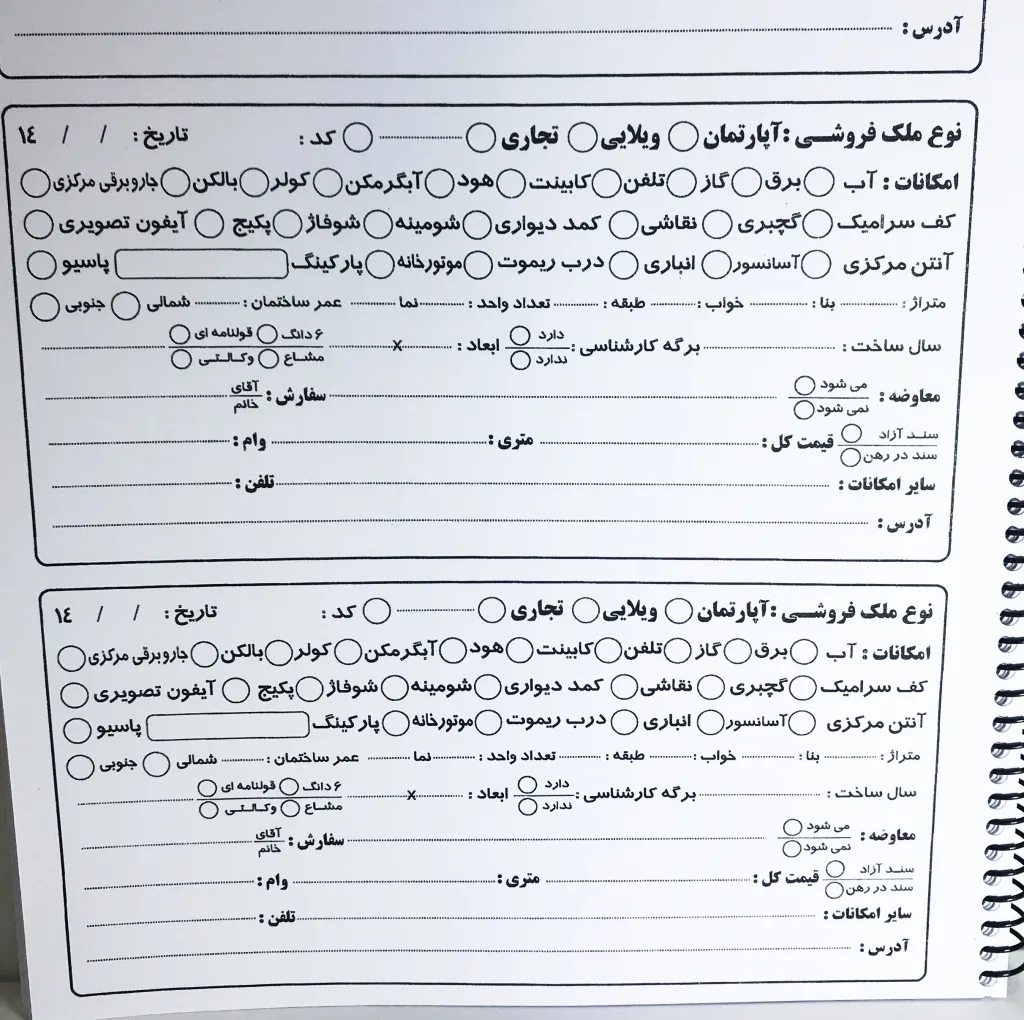 آدرس :
نوع ملک فروشی : آپارتمان ویلایی تجاری کد : تاریخ : / / ۱۴
امکانات : آب برق گاز تلفن کابینت هود آبگرمکن کولر بالکن جاروبرقی مرکزی
کف سرامیک گچبری نقاشی کمد دیواری شومینه شوفاژ پکیج آیفون تصویری
آنتن مرکزی آسانسور انباری درب ریموت موتورخانه پارکینگ پاسیو
متراژ : بنا : خواب : طبقه : تعداد واحد : نما عمر ساختمان : شمالی جنوبی
سال ساخت : برگه کارشناسی : دارد ندارد ابعاد : x ۶ دانگ قولنامه ای مشاع وکالتی
معاوضه : می شود نمی شود سفارش : آقای خانم
سند آزاد سند در رهن قیمت کل : متری : وام :
سایر امکانات : تلفن :
آدرس :
نوع ملک فروشی : آپارتمان ویلایی تجاری کد : تاریخ : / / ۱۴
امکانات : آب برق گاز تلفن کابینت هود آبگرمکن کولر بالکن جاروبرقی مرکزی
کف سرامیک گچبری نقاشی کمد دیواری شومینه شوفاژ پکیج آیفون تصویری
آنتن مرکزی آسانسور انباری درب ریموت موتورخانه پارکینگ پاسیو
متراژ : بنا : خواب : طبقه : تعداد واحد : نما عمر ساختمان : شمالی جنوبی
سال ساخت : برگه کارشناسی : دارد ندارد ابعاد : x ۶ دانگ قولنامه ای مشاع وکالتی
معاوضه : می شود نمی شود سفارش : آقای خانم
سند آزاد سند در رهن قیمت کل : متری : وام :
سایر امکانات : تلفن :
آدرس :